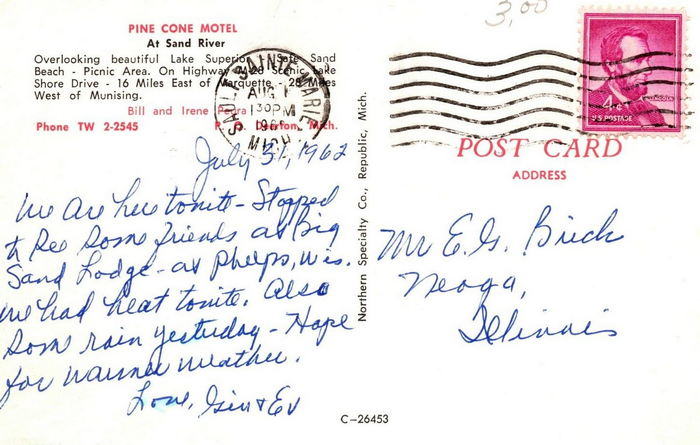 PINE CONE MOTEL
At Sand River
Overlooking beautiful Lake Superior Safe Sand
Beach - Picnic Area. On Highway M-28 Scenic Lake
Shore Drive - 16 Miles East of Marquette - 28 Miles
West of Munising.
Bill and Irene
Phone TW 2-2545 Deerton, Mich.
SAULT SAINTE MARIE
AUG 1
130 PM
196
MICH
3.00
LINCOLN
4¢
U.S. POSTAGE
POST CARD
ADDRESS
July 31, 1962
We are here tonite - Stopped
to see some friends at Big
Sand Lodge - at Phelps, Wis.
We had heat tonite. Also
some rain yesterday - Hope
for warmer weather.
Love, Gin & Ev
Mr E. G.
Neoga,
Illinois
Northern Specialty Co., Republic, Mich.
C-26453